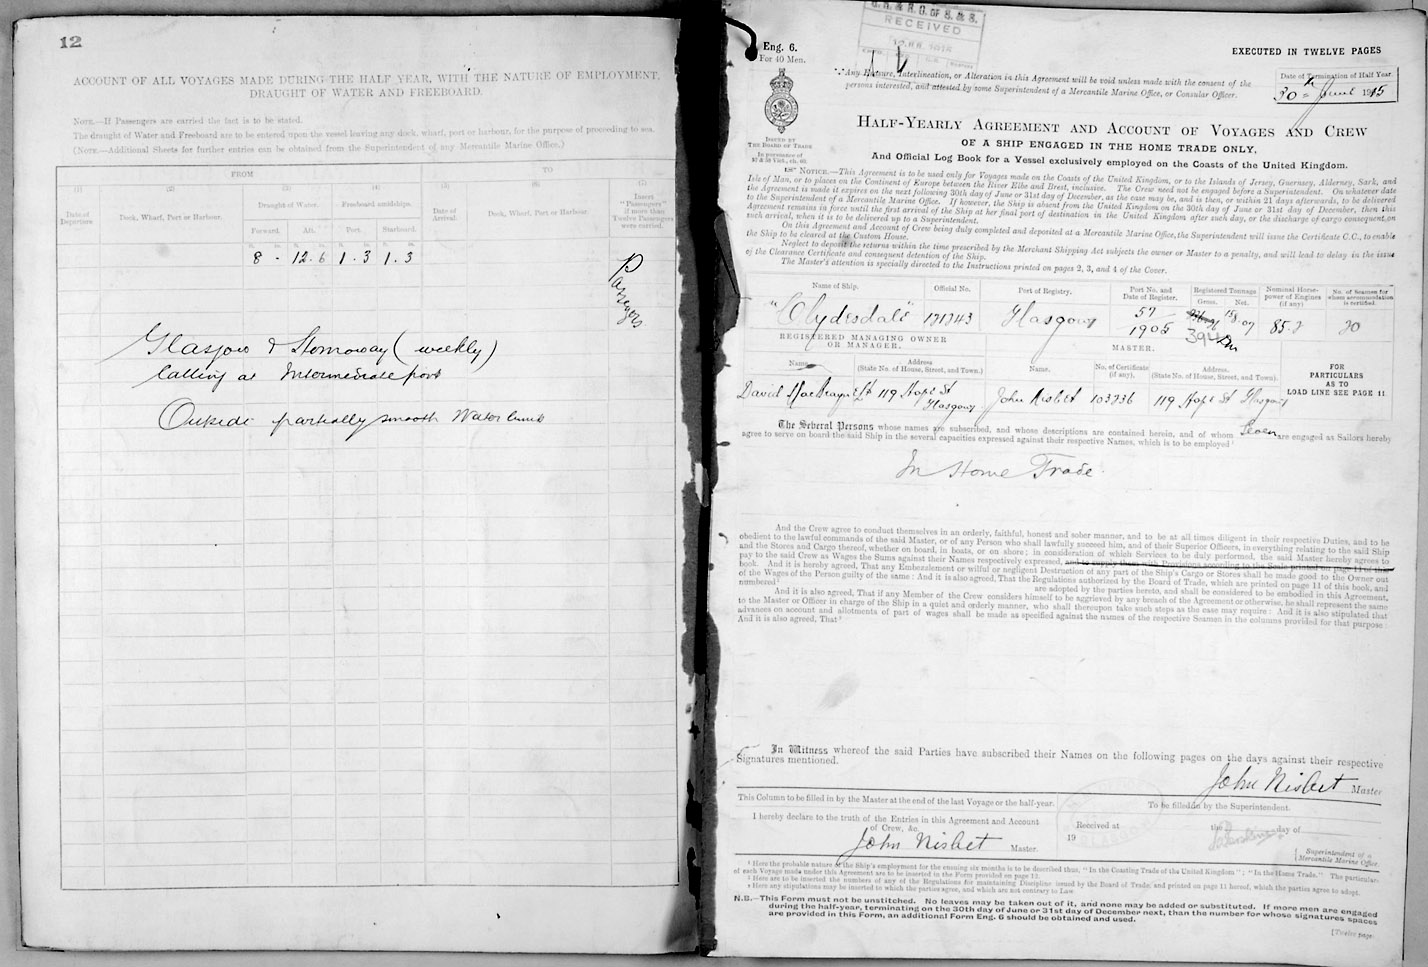 12
ACCOUNT OF ALL VOYAGES MADE DURING THE HALF YEAR, WITH THE NATURE OF EMPLOYMENT,
DRAUGHT OF WATER AND FREEBOARD.
NOTE.—If Passengers are carried the fact is to be stated.
The draught of Water and Freeboard are to be entered upon the vessel leaving any dock, wharf, port or harbour, for the purpose of proceeding to sea.
(NOTE.—Additional Sheets for further entries can be obtained from the Superintendent of any Mercantile Marine Office.)
FROM TO
(1) (2) (3) (4) (5) (6) (7)
Date of Departure
Dock, Wharf, Port or Harbour.
Draught of Water.
Freeboard amidships.
Date of Arrival.
Dock, Wharf, Port or Harbour
Insert "Passengers" if more than Twelve Passengers were carried.
Forward. Aft. Port. Starboard.
8 - 12.6 1.3 1.3
Passengers
Glasgow & Stornoway (weekly)
Calling at Intermediate ports
Outside partially smooth Water limit
RECEIVED
Eng. 6.
For 40 Men.
EXECUTED IN TWELVE PAGES
Any Erasure, Interlineation, or Alteration in this Agreement will be void unless made with the consent of the
persons interested, and attested by some Superintendent of a Mercantile Marine Office, or Consular Officer.
Date of Termination of Half Year
30th June 1915
ISSUED BY
THE BOARD OF TRADE
In pursuance of
57 & 58 Vict., ch. 60
HALF-YEARLY AGREEMENT AND ACCOUNT OF VOYAGES AND CREW
OF A SHIP ENGAGED IN THE HOME TRADE ONLY,
And Official Log Book for a Vessel exclusively employed on the Coasts of the United Kingdom.
NOTICE.—This Agreement is to be used only for Voyages made on the Coasts of the United Kingdom, or to the Islands of Jersey, Guernsey, Alderney, Sark, and
Isle of Man, or to places on the Continent of Europe between the River Elbe and Brest, inclusive. The Crew need not be engaged before a Superintendent. On whatever date
the Agreement is made it expires on the next following 30th day of June or 31st day of December, as the case may be, and is then, or within 21 days afterwards, to be delivered
to the Superintendent of a Mercantile Marine Office. If, however, the Ship is absent from the United Kingdom on the 30th day of June or 31st day of December, then this
Agreement remains in force until the first arrival of the Ship at her final port of destination in the United Kingdom after such day, or the discharge of cargo consequent on
such arrival, when it is to be delivered up to a Superintendent.
On this Agreement and Account of Crew being duly completed and deposited at a Mercantile Marine Office, the Superintendent will issue the Certificate C.C., to enable
the Ship to be cleared at the Custom House.
Neglect to deposit the returns within the time prescribed by the Merchant Shipping Act subjects the owner or Master to a penalty, and will lead to delay in the issue
of the Clearance Certificate and consequent detention of the Ship.
The Master's attention is specially directed to the Instructions printed on pages 2, 3, and 4 of the Cover.
Name of Ship. Official No. Port of Registry. Port No. and Date of Register. Registered Tonnage Gross. Net. Nominal Horse-power of Engines (if any) No. of Seamen for whom accommodation is certified.
"Clydesdale" 121243 Glasgow 57/1905 394 158.07 85.2 20
REGISTERED MANAGING OWNER
OR MANAGER.
MASTER.
Name. Address (State No. of House, Street, and Town.) Name. No. of Certificate (if any). Address. (State No. of House, Street, and Town).
FOR PARTICULARS AS TO LOAD LINE SEE PAGE 11
David MacBrayne Ltd 119 Hope St Glasgow John Nisbet 103236 119 Hope St Glasgow
The Several Persons whose names are subscribed, and whose descriptions are contained herein, and of whom Seven are engaged as Sailors hereby
agree to serve on board the said Ship in the several capacities expressed against their respective Names, which is to be employed¹
In Home Trade
And the Crew agree to conduct themselves in an orderly, faithful, honest and sober manner, and to be at all times diligent in their respective Duties, and to be
obedient to the lawful commands of the said Master, or of any Person who shall lawfully succeed him, and of their Superior Officers, in everything relating to the said Ship
and the Stores and Cargo thereof, whether on board, in boats, or on shore; in consideration of which Services to be duly performed, the said Master hereby agrees to
pay to the said Crew as Wages the Sums against their Names respectively expressed, and to supply them with Provisions according to the Scale printed on page 11 of this
book. And it is hereby agreed, That any Embezzlement or wilful or negligent Destruction of any part of the Ship's Cargo or Stores shall be made good to the Owner out
of the Wages of the Person guilty of the same: And it is also agreed, That the Regulations authorized by the Board of Trade, which are printed on page 11 of this book, and
numbered² are adopted by the parties hereto, and shall be considered to be embodied in this Agreement,
And it is also agreed, That if any Member of the Crew considers himself to be aggrieved by any breach of the Agreement or otherwise, he shall represent the same
to the Master or Officer in charge of the Ship in a quiet and orderly manner, who shall thereupon take such steps as the case may require: And it is also stipulated that
advances on account and allotments of part of wages shall be made as specified against the names of the respective Seamen in the columns provided for that purpose:
And it is also agreed, That³
In Witness whereof the said Parties have subscribed their Names on the following pages on the days against their respective
Signatures mentioned.
John Nisbet Master
This Column to be filled in by the Master at the end of the last Voyage or the half-year.
To be filled in by the Superintendent.
I hereby declare to the truth of the Entries in this Agreement and Account
of Crew, &c.
John Nisbet Master.
Received at the day of
19
Superintendent of a
Mercantile Marine Office.
¹ Here the probable nature of the Ship's employment for the ensuing six months is to be described thus, "In the Coasting Trade of the United Kingdom"; "In the Home Trade." The particulars
of each Voyage made under this Agreement are to be inserted in the Form provided on page 12.
² Here are to be inserted the numbers of any of the Regulations for maintaining Discipline issued by the Board of Trade, and printed on page 11 hereof, which the parties agree to adopt.
³ Here any stipulations may be inserted to which the parties agree, and which are not contrary to Law
N.B.—This Form must not be unstitched. No leaves may be taken out of it, and none may be added or substituted. If more men are engaged
during the half-year, terminating on the 30th day of June or 31st day of December next, than the number for whose signatures spaces
are provided in this Form, an additional Form Eng. 6 should be obtained and used.
[Twelve page